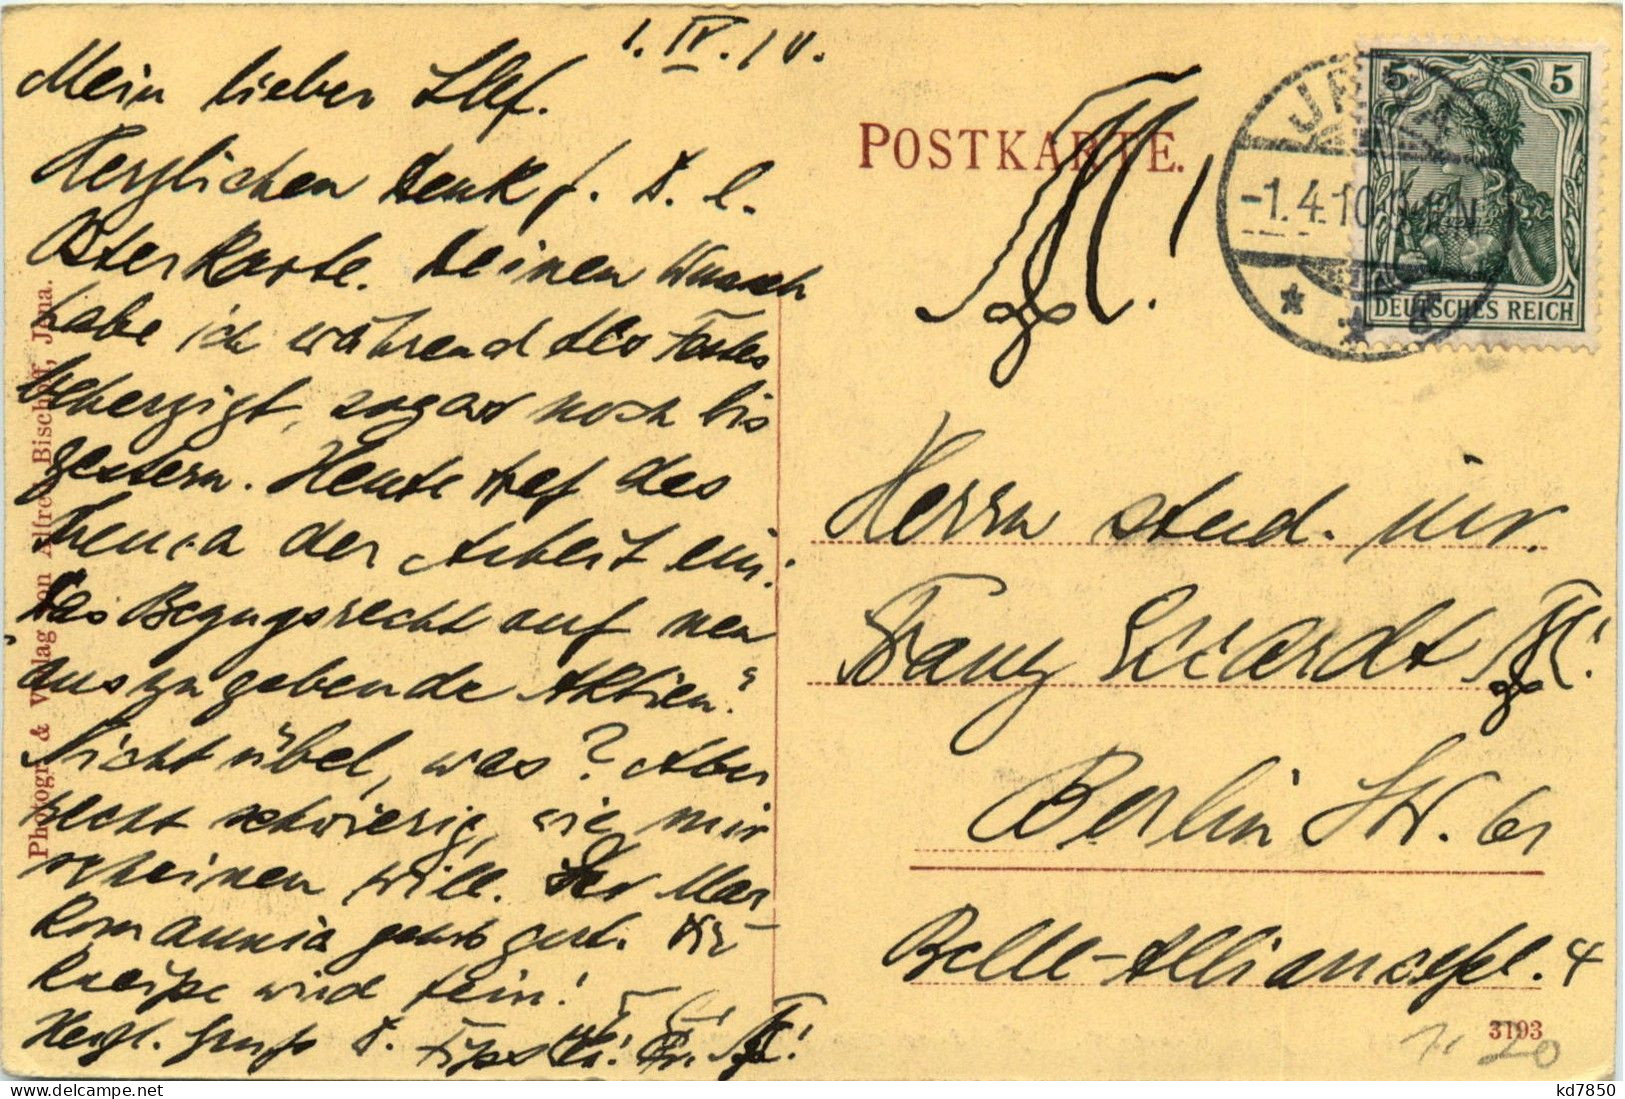 1. IV. 10.
Mein lieber
Herzlichen Dank f. D. l.
Osterkarte. Deinen Wunsch
habe ich während des Festes
beherzigt, sogar noch bis
gestern. Heute traf das
Thema der Arbeit ein:
„Das Bezugsrecht auf neu
auszugebende Aktien“.
Nicht übel, was? Aber
recht schwierig, wie mir
scheinen will. Der
Romannia geht's gut. Die
Kneipe wird fein!
Herzl. Gruß D.
Photogr. & Verlag von Alfred Bischoff, Jena.
POSTKARTE.
JENA
-1.4.10.
* * 6
5 5
DEUTSCHES REICH
Herrn stud. iur.
Franz
Berlin SW. 61
Belle-Alliancepl. 4
3193
20
kd7850